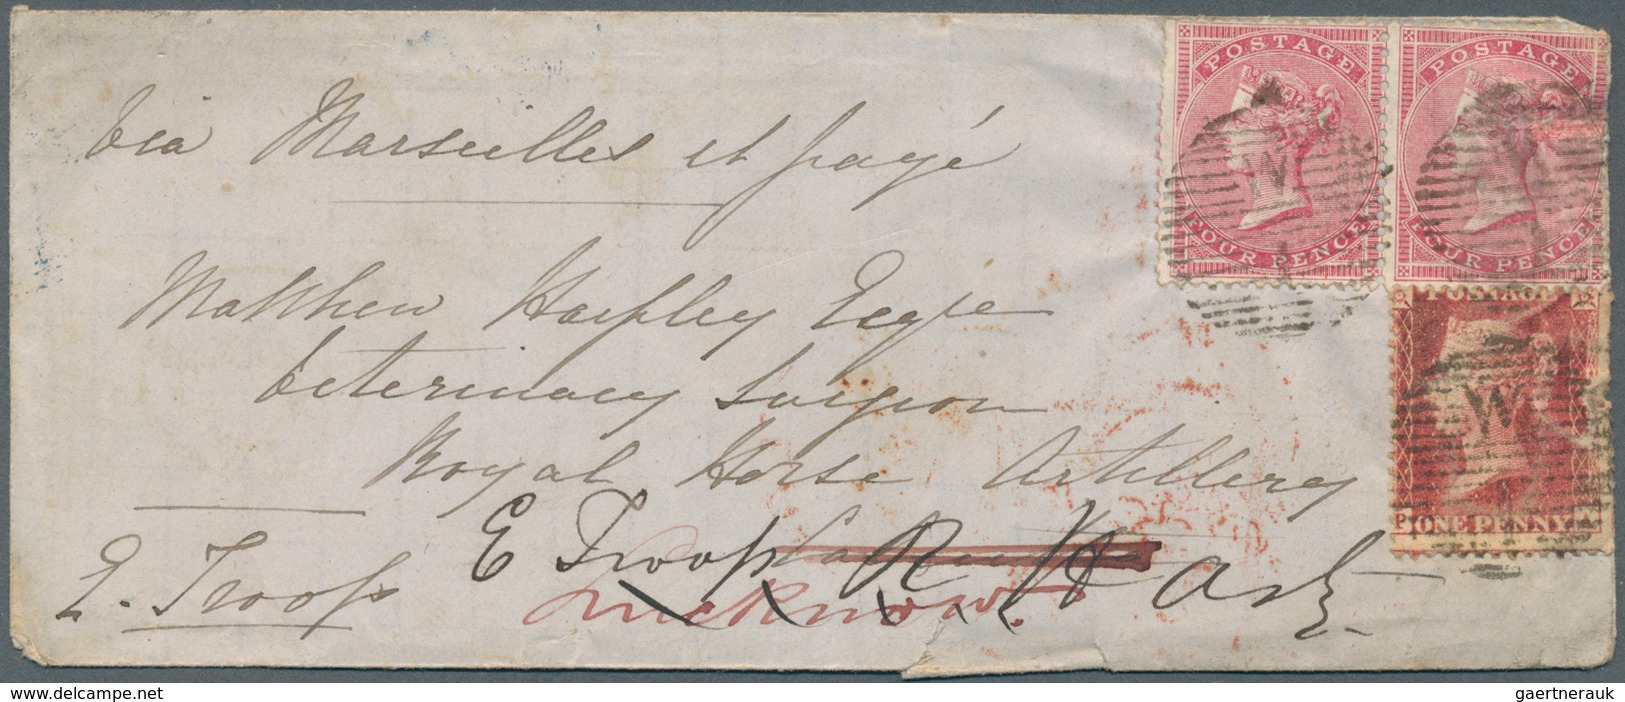 via Marseilles et payé
Matthew Harpley Esqre
Veterinary Surgeon
Royal Horse Artillery
E. Troop
E Troop R H Art
Lucknow.
POSTAGE
FOUR PENCE
W
1
POSTAGE
FOUR PENCE
POSTAGE
W
1
ONE PENNY
www.delcampe.net
gaertnerauk